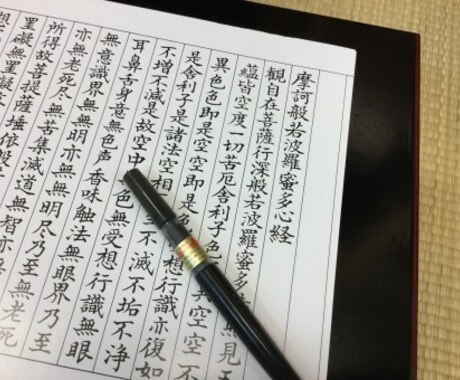 摩訶般若波羅蜜多心経
観自在菩薩行深般若波羅蜜多 見五
蘊皆空度一切苦厄舎利子色 異空空不
異色色即是空空即是色 想行識亦復如
是舎利子是諸法空相 不滅不垢不浄
不増不減是故空中 色無受想行識無眼
耳鼻舌身意無色声香味触法無眼界乃至
無意識界無無明亦無無明尽乃至無老死
亦無老死尽無苦集滅道無智亦無
所得故菩提薩埵依般
罣礙無罣礙